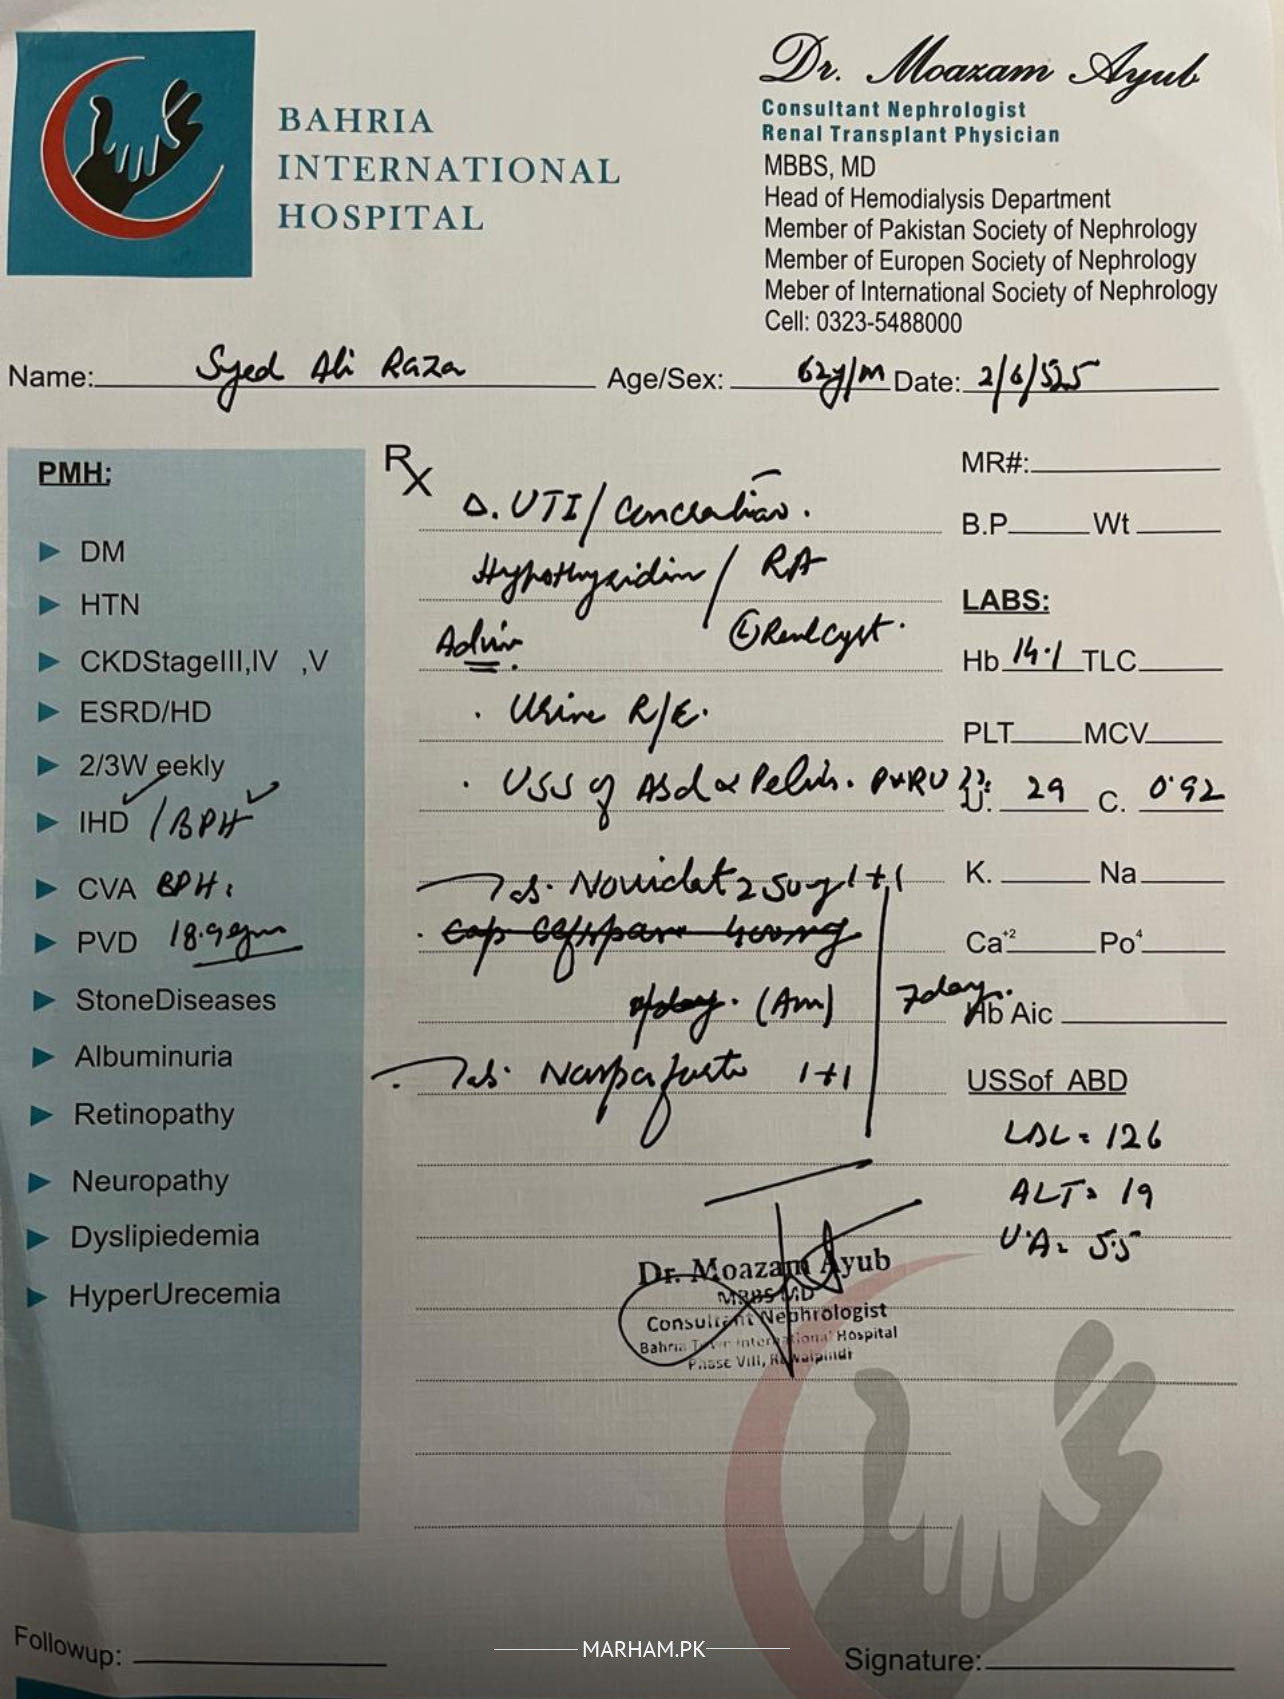 Dr. Moazam Ayub
Consultant Nephrologist
Renal Transplant Physician
MBBS, MD
Head of Hemodialysis Department
Member of Pakistan Society of Nephrology
Member of Europen Society of Nephrology
Meber of International Society of Nephrology
Cell: 0323-5488000
BAHRIA
INTERNATIONAL
HOSPITAL
Name: Syed Ali Raza Age/Sex: 62y/m Date: 2/6/
PMH:
DM
HTN
CKDStageIII,IV ,V
ESRD/HD
2/3Weekly
IHD / BPH
CVA BPH:
PVD 18.9gm
StoneDiseases
Albuminuria
Retinopathy
Neuropathy
Dyslipiedemia
HyperUrecemia
Rx
Δ. UTI /
/ RA
(L) Renal Cyst.
. Urine R/E.
. USS of Abd & Pelvis.
Tab. Novidat 250mg 1+1
(Am)
7day.
. Tab. forte 1+1
MR#:
B.P Wt
LABS:
Hb 14.1 TLC
PLT MCV
U. 29 C. 0.92
K. Na
Ca+2 Po4
Hb Aic
USSof ABD
LDL = 126
ALT = 19
U.A = 5.5
Dr. Moazam Ayub
MBBS MD
Consultant Nephrologist
Bahria Town International Hospital
Phase VIII, Rawalpindi
Followup:
MARHAM.PK
Signature: